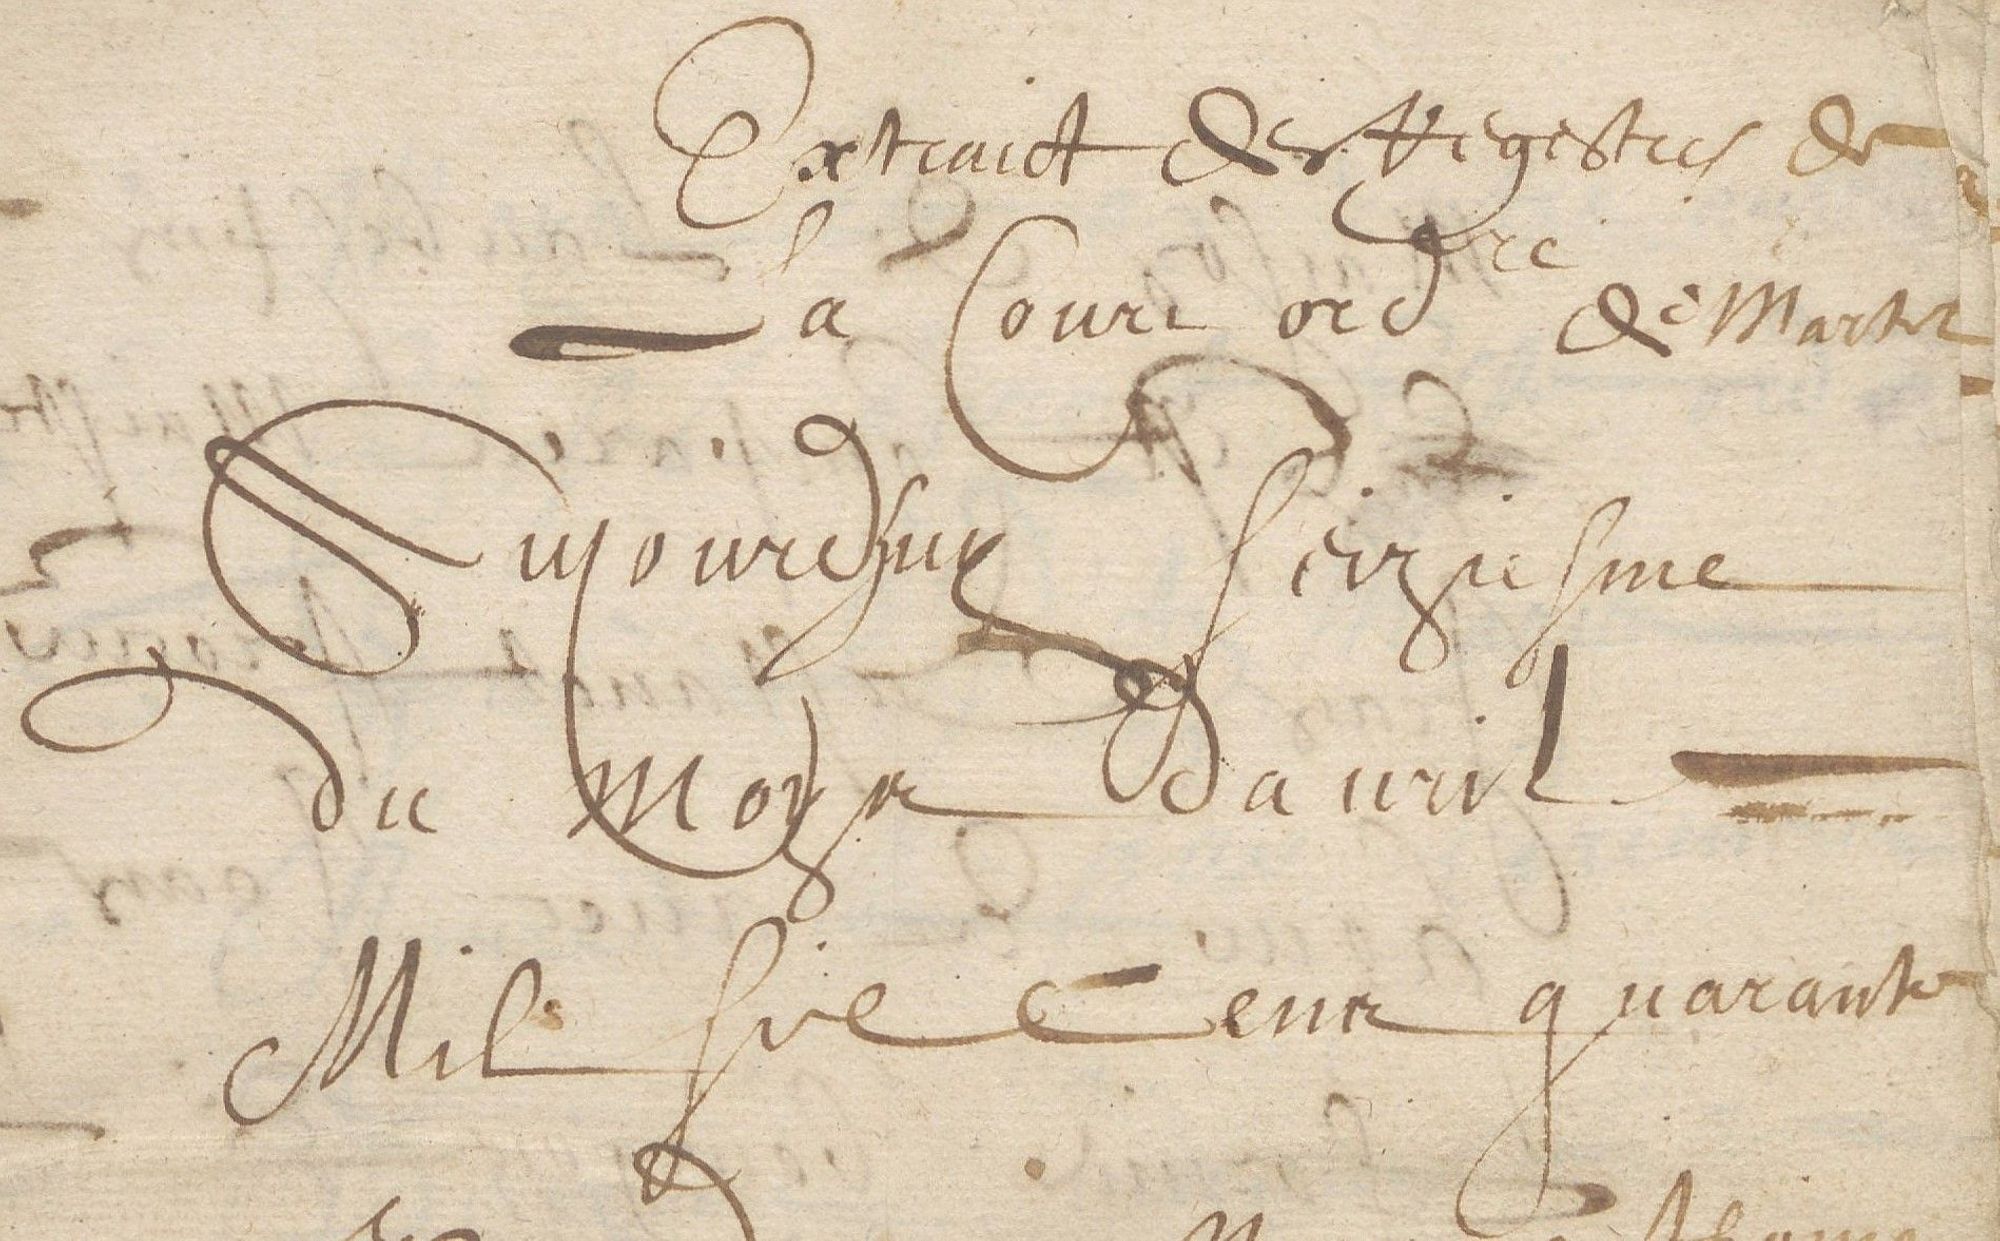 Extraict des Registres de
la Cour ordre de Martel
Aujourdhuy seiziesme
du moys dauril
Mil six cens quarante